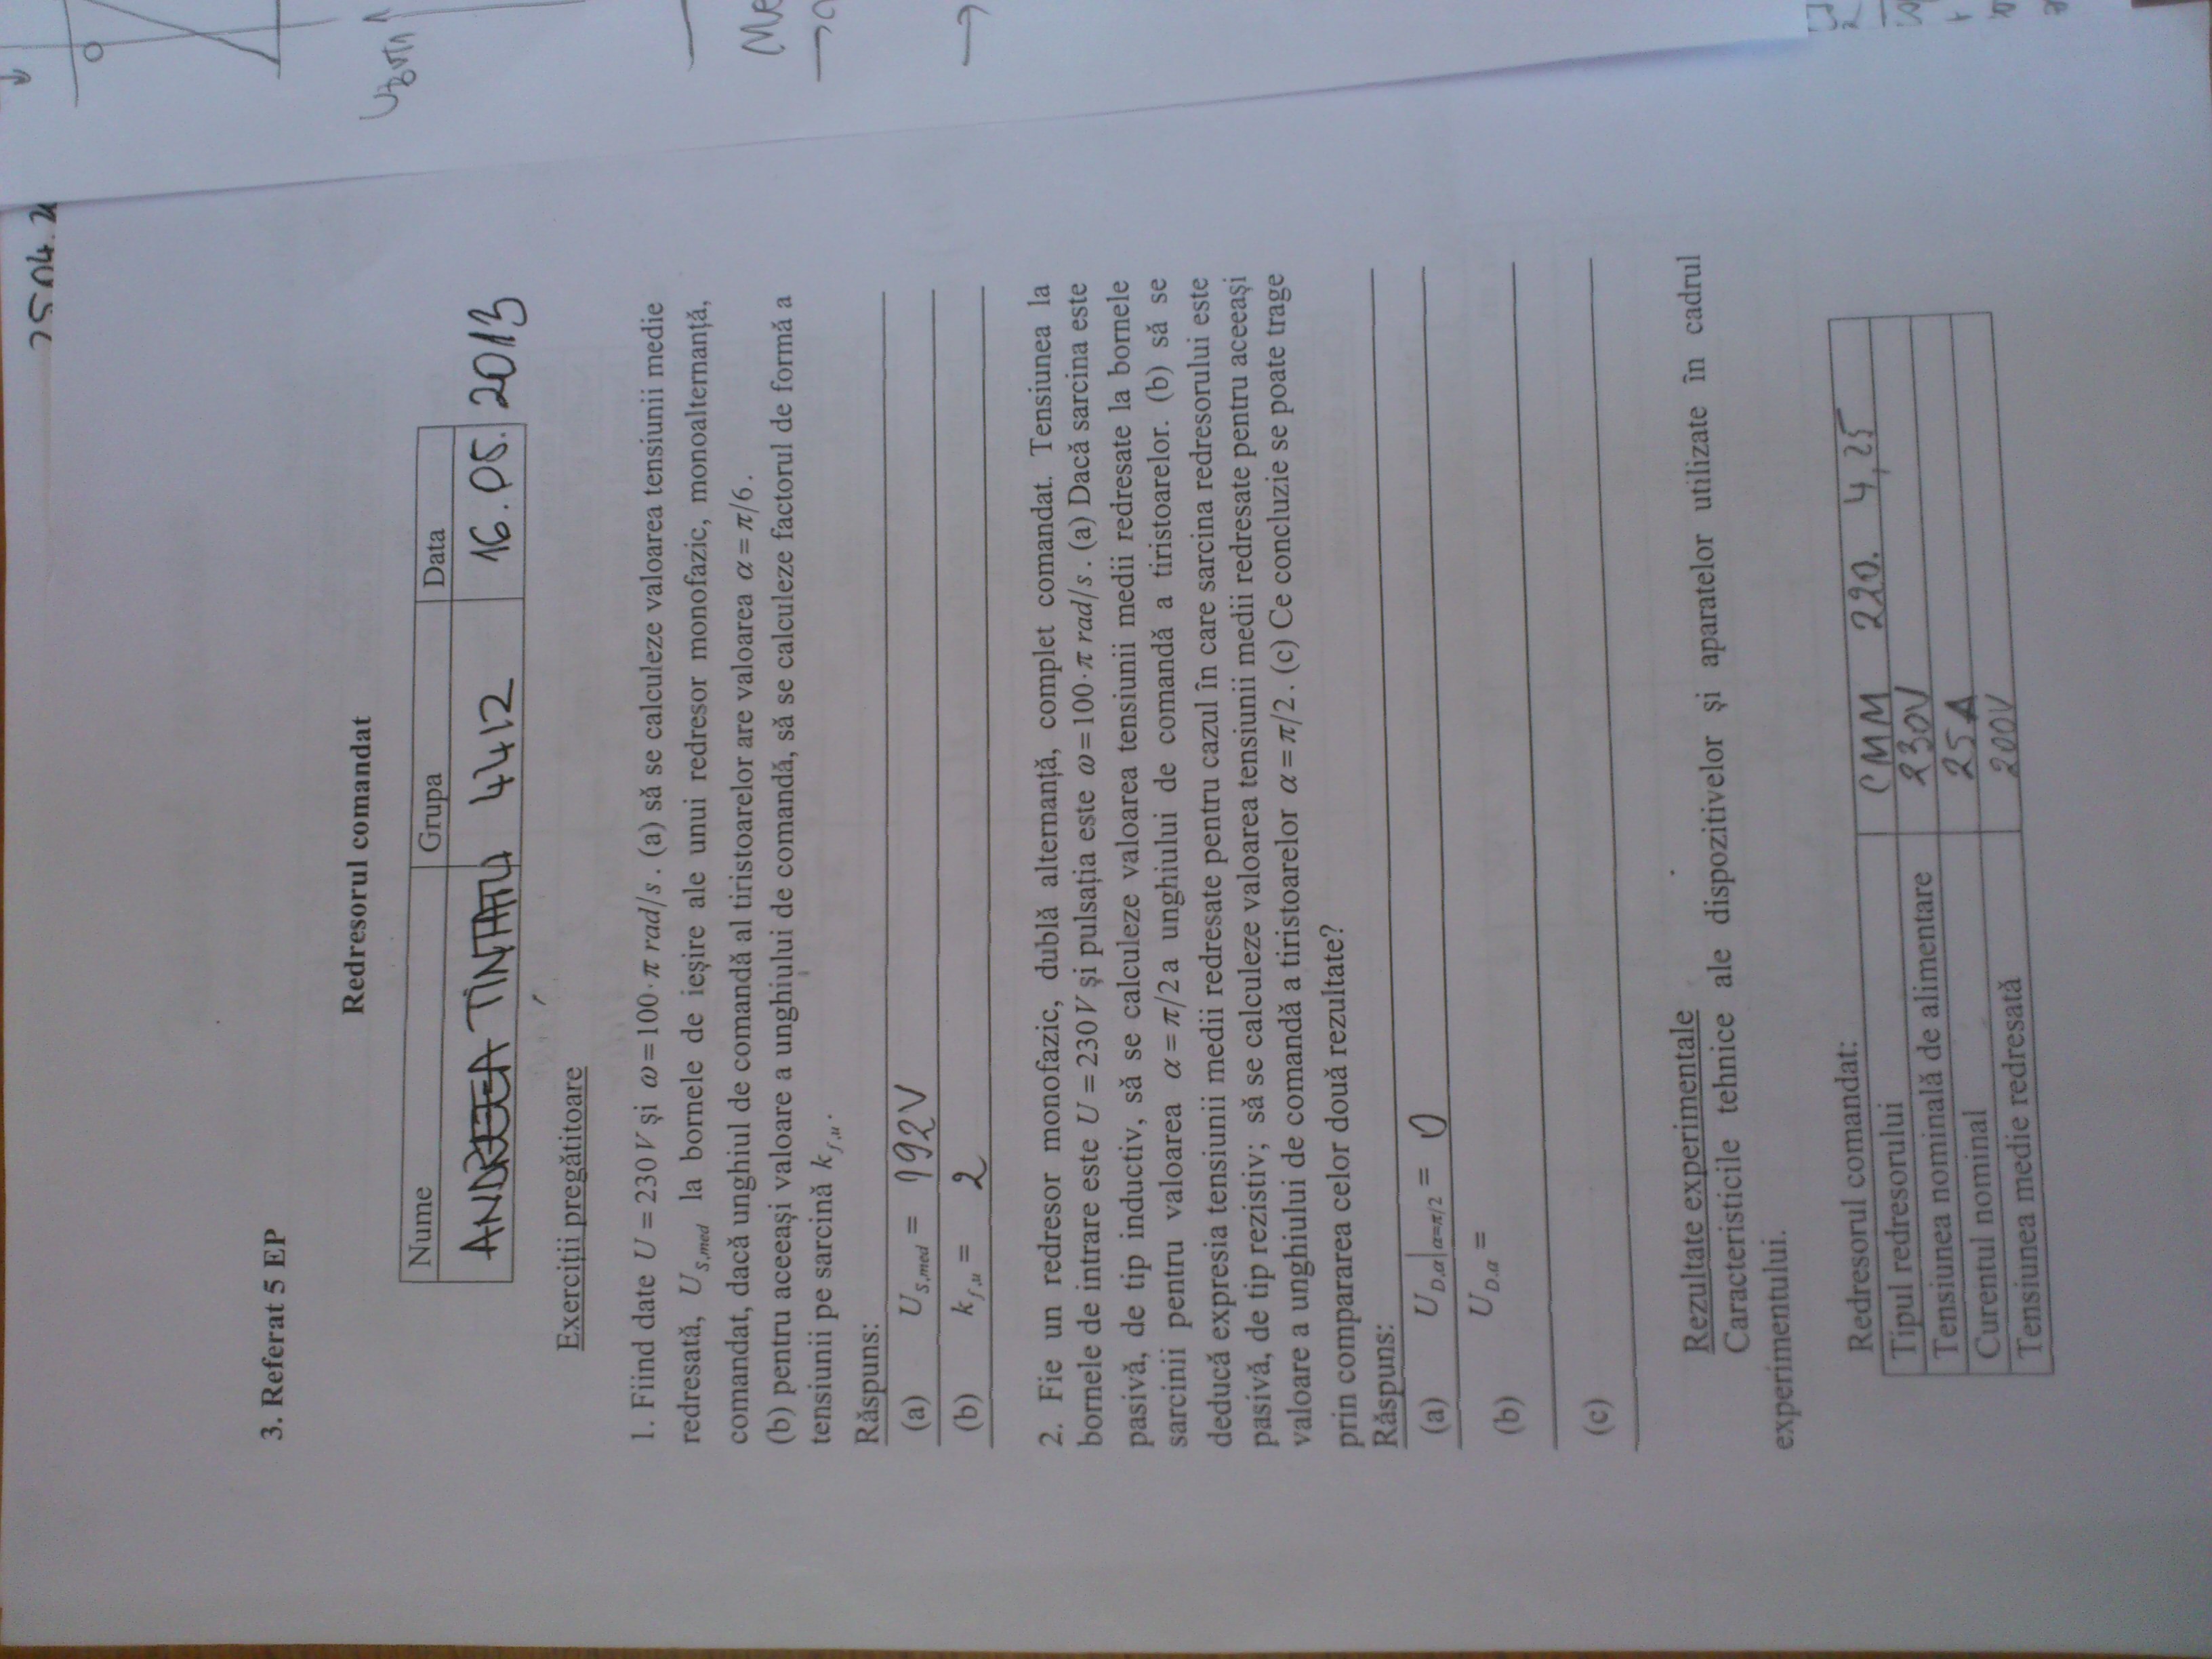 25.04.2
3. Referat 5 EP
Redresorul comandat
Nume Grupa Data
ANDREEA TINTARU 4412 16.05.2013
Exerciții pregătitoare
1. Fiind date U = 230V și ω = 100·π rad/s. (a) să se calculeze valoarea tensiunii medie
redresată, U_{S,med} la bornele de ieșire ale unui redresor monofazic, monoalternanță,
comandat, dacă unghiul de comandă al tiristoarelor are valoarea α = π/6.
(b) pentru aceeași valoare a unghiului de comandă, să se calculeze factorul de formă a
tensiunii pe sarcină k_{f,u}.
Răspuns:
(a) U_{S,med} = 192V
(b) k_{f,u} = 2
2. Fie un redresor monofazic, dublă alternanță, complet comandat. Tensiunea la
bornele de intrare este U = 230V și pulsația este ω = 100·π rad/s. (a) Dacă sarcina este
pasivă, de tip inductiv, să se calculeze valoarea tensiunii medii redresate la bornele
sarcinii pentru valoarea α = π/2 a unghiului de comandă a tiristoarelor. (b) să se
deducă expresia tensiunii medii redresate pentru cazul în care sarcina redresorului este
pasivă, de tip rezistiv; să se calculeze valoarea tensiunii medii redresate pentru aceeași
valoare a unghiului de comandă a tiristoarelor α = π/2. (c) Ce concluzie se poate trage
prin compararea celor două rezultate?
Răspuns:
(a) U_{D,α}|_{α=π/2} = 0
U_{D,α} =
(b)
(c)
Rezultate experimentale
Caracteristicile tehnice ale dispozitivelor și aparatelor utilizate în cadrul
experimentului.
Redresorul comandat:
Tipul redresorului CMM 220. 4,25
Tensiunea nominală de alimentare 230V
Curentul nominal 25A
Tensiunea medie redresată 200V